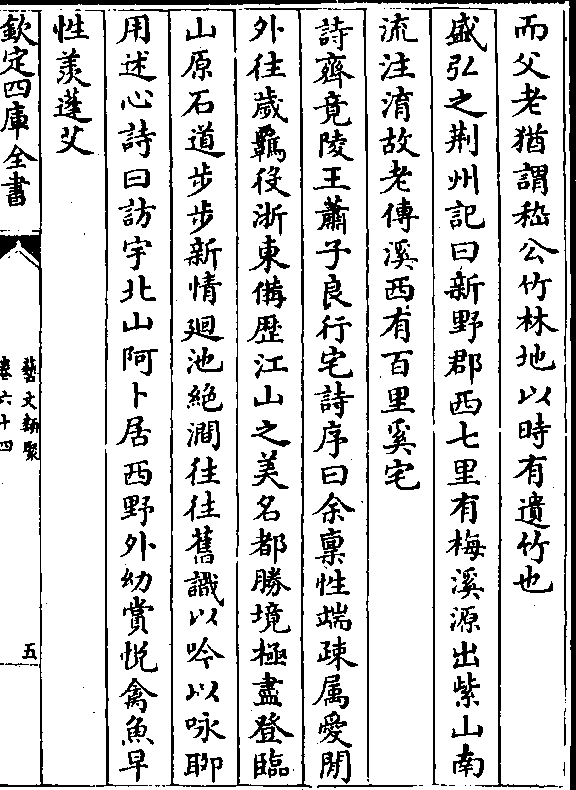 而父老猶謂嵇公竹林地以時有遺竹也
盛弘之荆州記曰新野郡西七里有梅溪源出紫山南
流注淯故老傳溪西有百里奚宅
詩齊竟陵王蕭子良行宅詩序曰余禀性端疎属愛閒
外往歲羈役浙東備歴江山之美名都勝境極盡登臨
山原石道步步新情廻池絶澗往往舊識以吟以咏聊
用述心詩曰訪宇北山阿卜居西野外幼賞悦禽魚早
性羡蓬艾
欽定四庫全書
藝文類聚
卷六十四
五